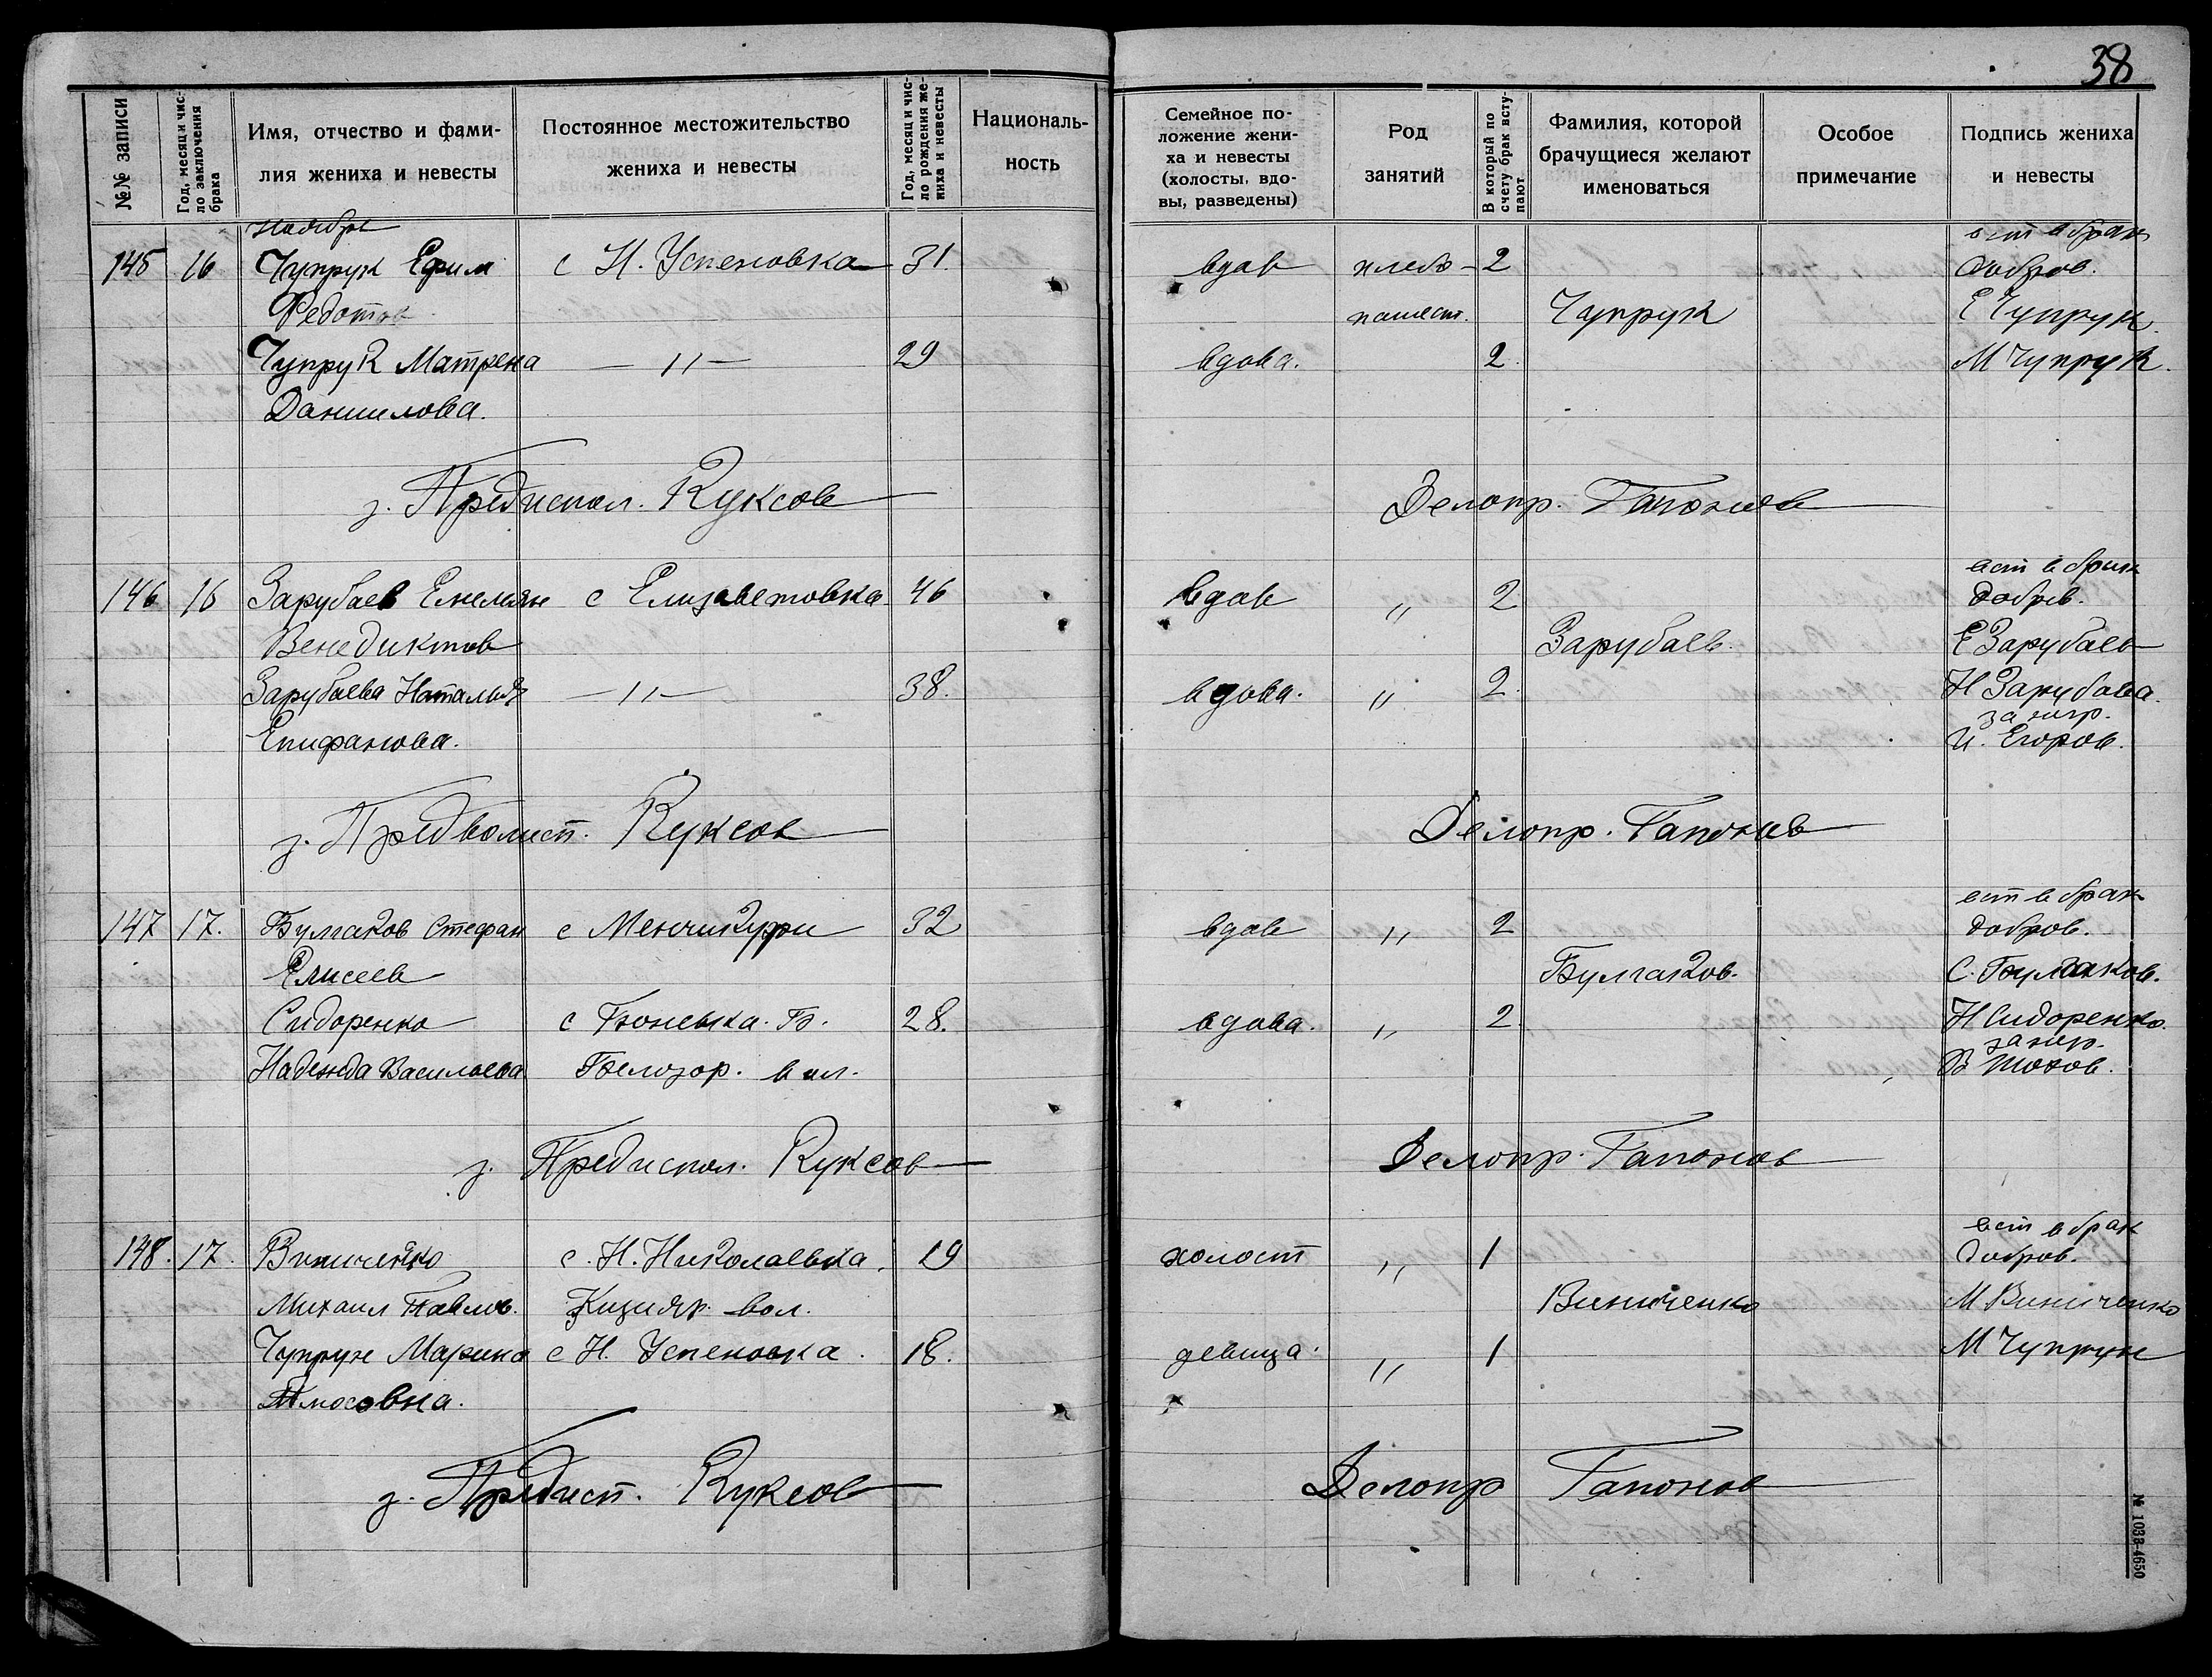 38
№№ записи
Год, месяц и чис-
ло заключения
брака
Имя, отчество и фами-
лия жениха и невесты
Постоянное местожительство
жениха и невесты
Год, месяц и чис-
ло рождения же-
ниха и невесты
Националь-
ность
Семейное по-
ложение жени-
ха и невесты
(холосты, вдо-
вы, разведены)
Род
занятий
В который по
счету брак всту-
пают
Фамилия, которой
брачущиеся желают
именоваться
Особое
примечание
Подпись жениха
и невесты
ноябрь
вст в брак
145 16 Чупрук Ефим с Н. Успеновка 31. вдов хлебо- 2 добров.
Федотов пашест. Чупрук Е Чупрук.
Чупрук Матрена — " — 29 вдова. 2. М Чупрук.
Даниилова.
з. Предиспол. Куксов Делопр. Гапонов
вст в брак
146 16 Зарубаев Емельян с Елизаветовка 46 вдов " 2 добров.
Венедиктов Зарубаев. Е Зарубаев
Зарубаева Наталья — " — 38. вдова. " 2. Н Зарубаева.
за негр.
Епифанова. И. Егоров.
з. Предволисп. Куксов Делопр. Гапонов
вст в брак
147 17. Булгаков Стефан с Менчикурри 32 вдов " 2 добров.
Елисеев Булгаков. С. Булгаков.
Сидоренко с 28. вдова. " 2 Н Сидоренко.
за негр.
Надежда Васильева Белозор. вол. В
з. Предиспол. Куксов Делопр. Гапонов
вст в брак
148. 17. Виниченко с. Н. Николаевка. 19 холост " 1 добров.
Михаил Павлов. Кизияр. вол. Виниченко М Виниченко
Чупрун Марина с Н. Успеновка. 18. девица. " 1 М Чупрун
з. Предисп. Куксов Делопр Гапонов
№ 1033-4650